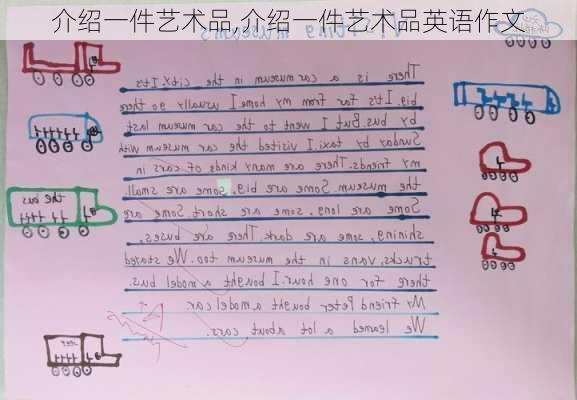 介绍一件艺术品,介绍一件艺术品英语作文
Visiting museums
There is a car museum in the city. Its
big. Its far from my home. I usually go there
by bus. But I went to the car museum last
Sunday by taxi. I visited the car museum with
my friends. There are many kinds of cars in
the museum. Some are big, some are small.
Some are long, some are short. Some are
shining, some are dark. There are buses,
trucks, vans in the museum too. We
there for one hour. I bought a model bus.
My friend Peter bought a model car
We learned a lot about cars.
the bus